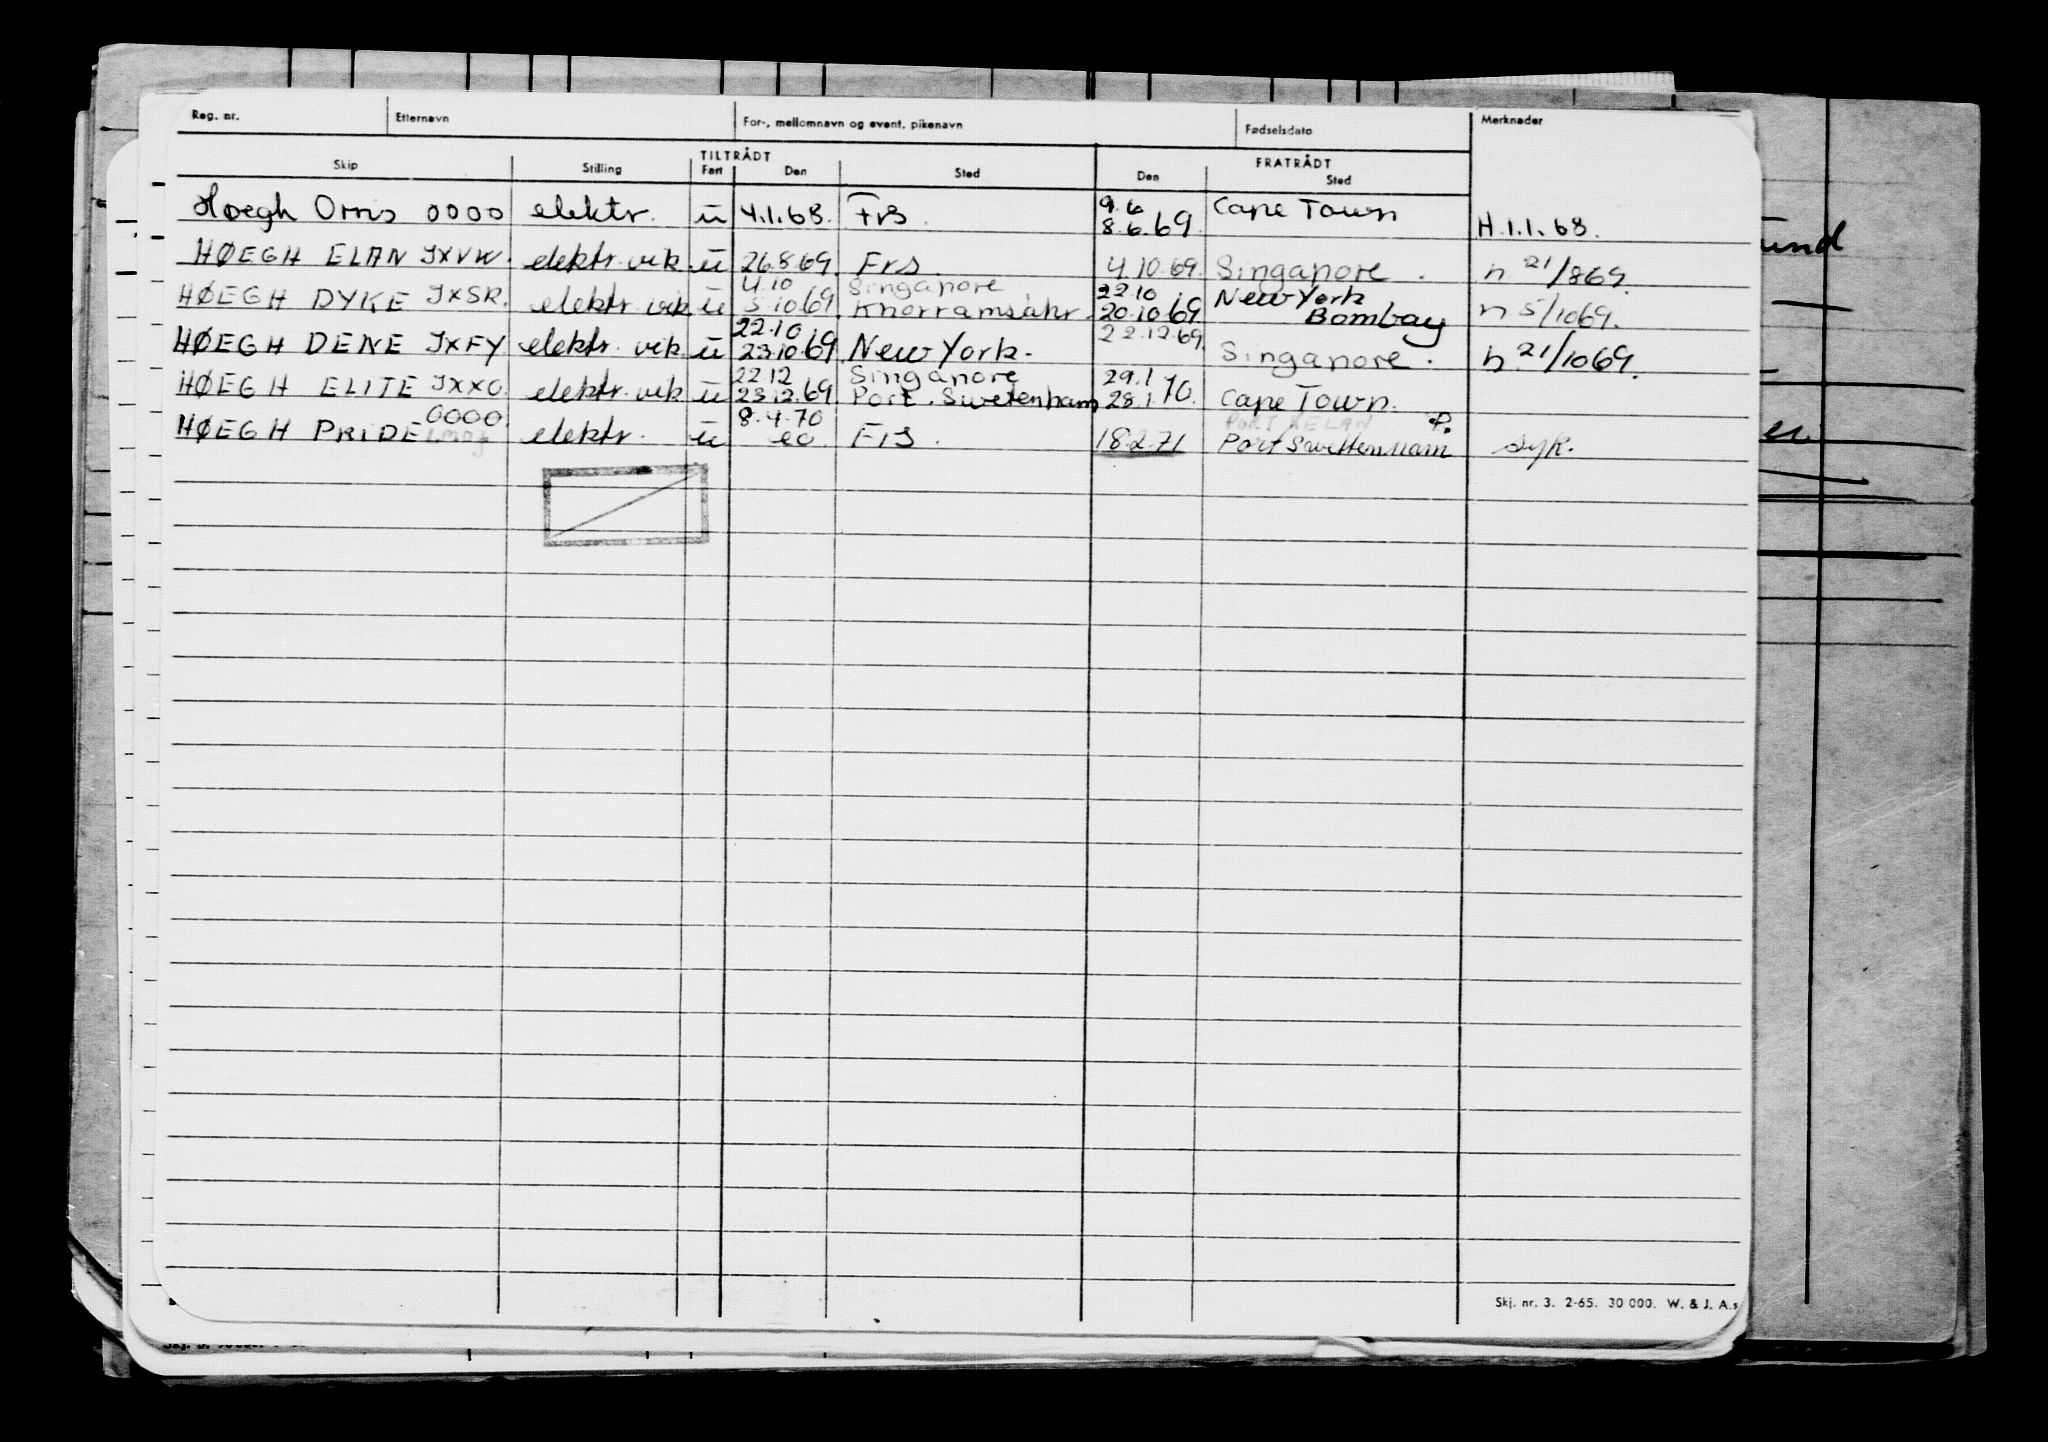 Reg. nr. Etternavn For-, mellomnavn og event. pikenavn Fødselsdato Merknader
TILTRÅDT FRATRÅDT
Skip Stilling Fart Den Sted Den Sted
Høegh Orris 0000 elektr. u 4.1.68. Frs. 9.6 8.6.69. Cape Town H.1.1.68.
HØEGH ELAN JXVW. elektr. vek u 26.8.69. Frs. 4.10.69. Singapore. h 21/869.
4.10 Singapore 22.10 New York
HØEGH DYKE JXSR. elektr. vek u 5.10.69 Khorramsahr. 20.10.69. Bombay h 5/1069.
22.10 22.12.69.
HØEGH DENE JXFY elektr. vek. u 23.10.69 New York. Singapore. h. 21/1069.
22.12 Singapore 29.1
HØEGH ELITE JXXO. elektr. vek u 23.12.69 Port. Swetenham 28.1 70. Cape Town.
0000. 8.4.70 PORT KELAN P.
HØEGH PRIDE elektr. u Frs. 18.2.71 Port Swettenham syk.
und
en
Skj. nr. 3. 2-65. 30 000. W. & J. A.s